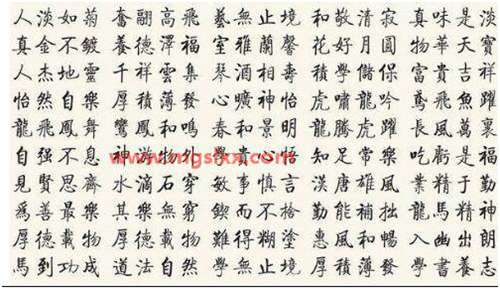 人淡如菊 奮翮高飛 藝無止境 和敬清寂 真味是淡
真金不鍍 養德澤福 室雅蘭馨 花好月圓 物華天寶
人杰地靈 千祥雲集 琴相壽 積學儲保 富貴吉祥
怡然自樂 厚積薄發 心曠神怡 虎嘯龍吟 鳶飛魚躍
龍飛鳳舞 鸞鳳和鳴 春和景明 龍騰虎躍 長風萬裏
自强不息 神游物外 學貴心悟 知足常樂 吃虧是福
www.mgsfxx.com
見賢思齊 水滴石穿 敏事慎言 漢唐雄風 業精于勤
為善最樂 其樂無窮 鍥而不捨 勤能補拙 龍馬精神
厚德載物 厚德載物 難得糊塗 惠風和暢 入幽出朗
馬到功成 道法自然 學無止境 厚積薄發 學書養志